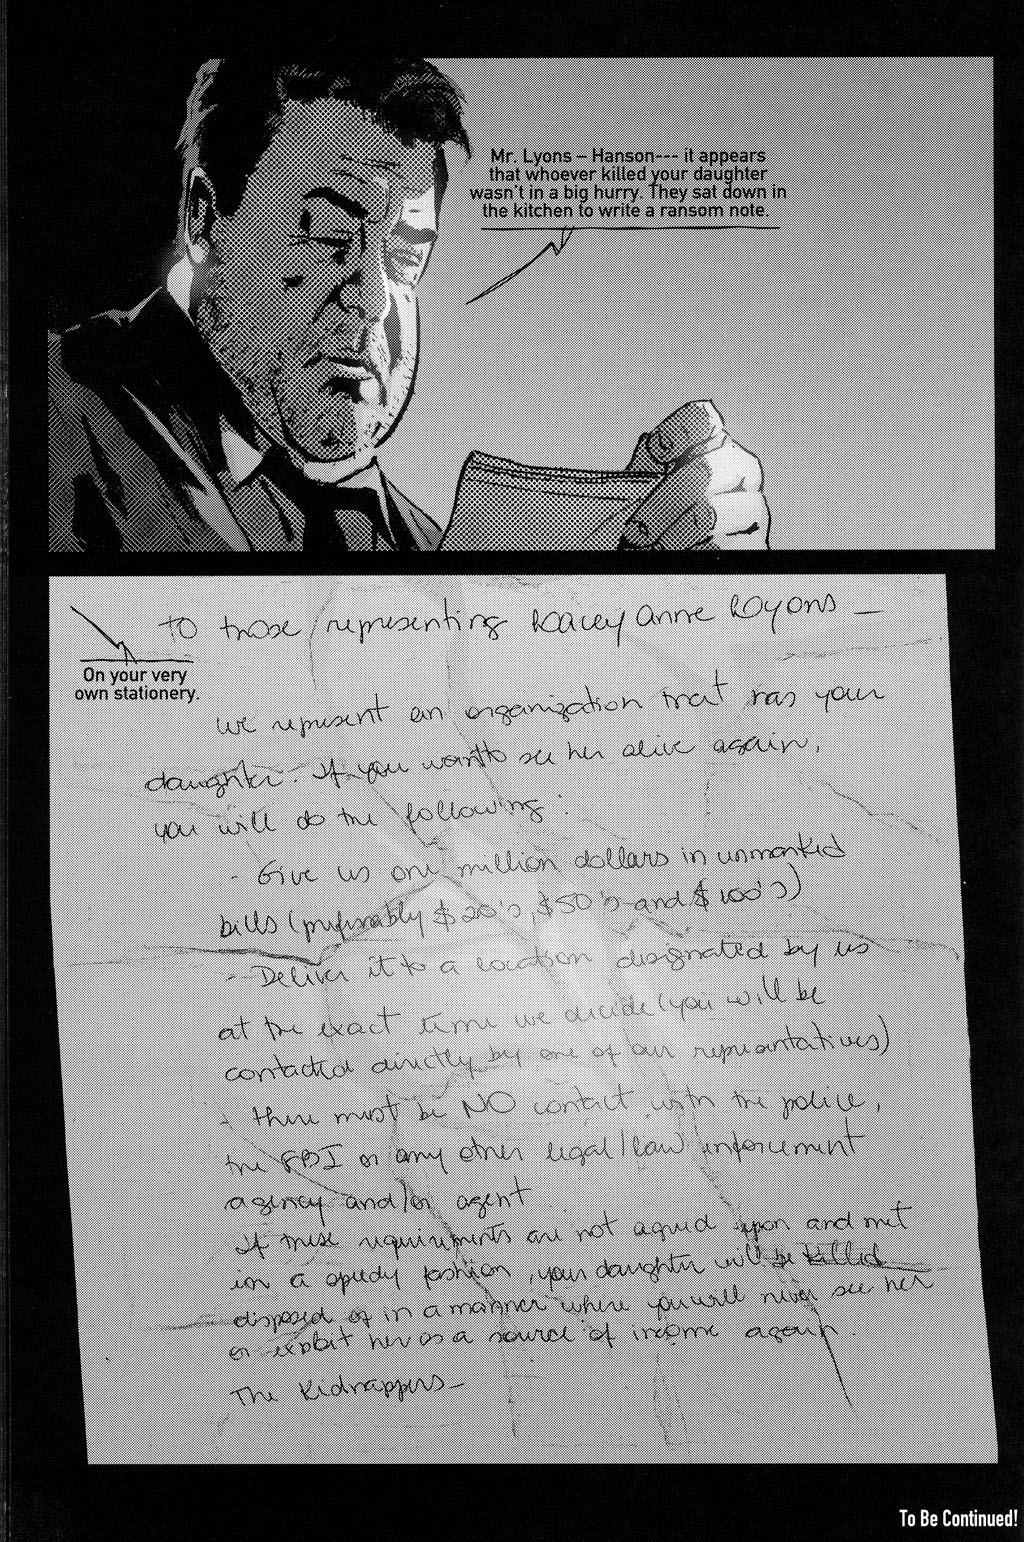 Mr. Lyons – Hanson--- it appears
that whoever killed your daughter
wasn't in a big hurry. They sat down in
the kitchen to write a ransom note.
To those representing Kacey Anne Lyons —
On your very
own stationery.
we represent an organization that has your
daughter. If you want to see her alive again,
you will do the following:
- Give us one million dollars in unmarked
bills (preferrably $20's, $50's and $100's)
- Deliver it to a location designated by us
at the exact time we decide (you will be
contacted directly by one of our representatives)
- there must be NO contact with the police,
the FBI or any other legal/law enforcement
agency and/or agent
If these requirements are not agreed upon and met
in a speedy fashion, your daughter will be killed
disposed of in a manner where you will never see her
or exploit her as a source of income again.
The Kidnappers—
To Be Continued!